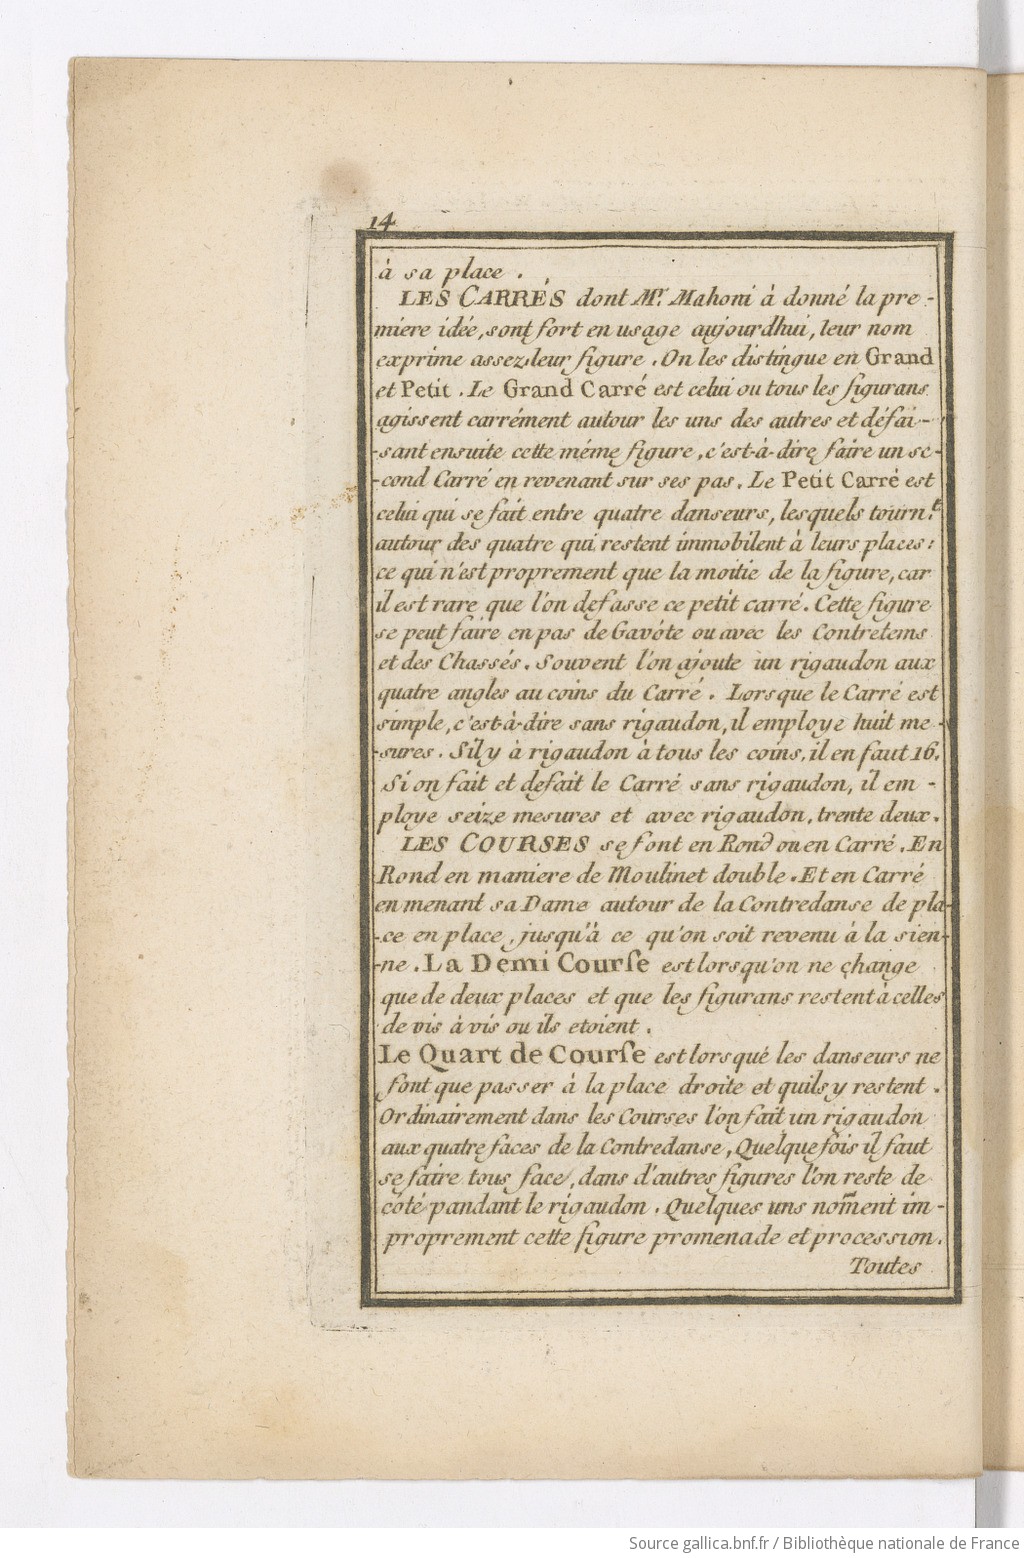 14
à sa place .
LES CARRÉS dont Mr. Mahoni à donné la pre .-
miere idée, sont fort en usage aujourdhui, leur nom
exprime assez leur figure . On les distingue en Grand
et Petit . Le Grand Carré est celui ou tous les figurans
agissent carrément autour les uns des autres et défai-
-sant ensuite cette méme figure, c'est-à-dire faire un se-
-cond Carré en revenant sur ses pas. Le Petit Carré est
celui qui se fait entre quatre danseurs, lesquels tourn.t
autour des quatre qui restent immobilent à leurs places:
ce qui n'est proprement que la moitie de la figure, car
il est rare que l'on defasse ce petit carré. Cette figure
se peut faire en pas de Gavóte ou avec les Contretems
et des Chassés. Souvent l'on ajoute un rigaudon aux
quatre angles au coins du Carré . Lorsque le Carré est
simple, c'est-à-dire sans rigaudon, il employe huit me-
-sures. S'il y à rigaudon à tous les coins, il en faut 16.
Si on fait et defait le Carré sans rigaudon, il em -
ploye seize mesures et avec rigaudon, trente deux.
LES COURSES se font en Rond ou en Carré. En
Rond en maniere de Moulinet double. Et en Carré
en menant sa Dame autour de la Contredanse de pla-
-ce en place, jusqu'à ce qu'on soit revenu à la sien-
-ne. La Demi Courſe est lorsqu'on ne change
que de deux places et que les figurans restent à celles
de vis à vis ou ils etoient .
Le Quart de Courſe est lorsqué les danseurs ne
font que passer à la place droite et quils y restent .
Ordinairement dans les Courses l'on fait un rigaudon
aux quatre faces de la Contredanse, Quelque fois il faut
se faire tous face, dans d'autres figures l'on reste de
côté pandant le rigaudon . Quelques uns nom̃ent im-
proprement cette figure promenade et procession.
Toutes
Source gallica.bnf.fr / Bibliothèque nationale de France